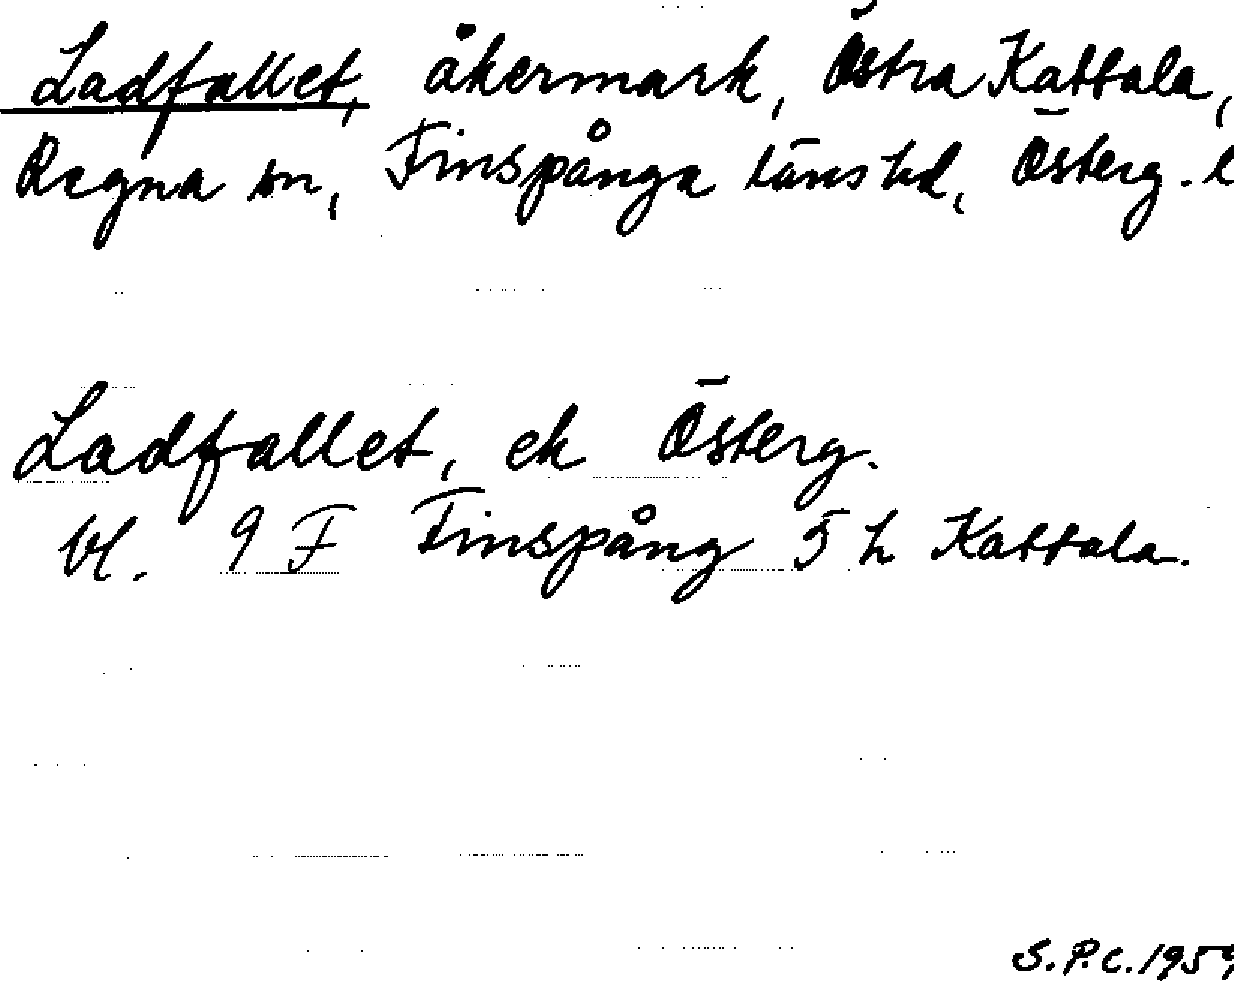 Ladfallet, åkermark, Östra Kattala,
Regna sn, Finspånga läns hd, Österg. l
Ladfallet, ek Österg.
bl. 9 F Finspång 5 h Kattala.
S.P.C. 1959